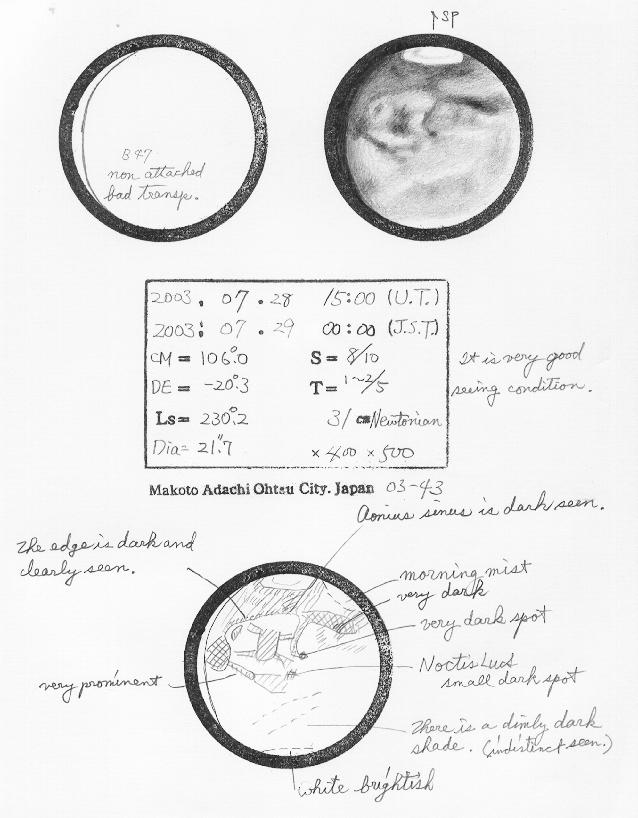 P21
B47
non attached
bad transp.
2003. 07. 28 15:00 (U.T.)
2003: 07. 29 00:00 (J.S.T.)
CM = 106°.0 S = 8/10
DE = -20°.3 T = 1~2/5
Ls = 230°.2 31 cm Newtonian
Dia = 21".7 ×400 ×500
It is very good
seeing condition.
Makoto Adachi Ohtsu City. Japan 03-43
Aonius sinus is dark seen.
The edge is dark and
clearly seen.
morning mist
very dark
very dark spot
Noctis Lud
small dark spot
very prominent
There is a dimly dark
shade. (indistinct seen.)
white brightish